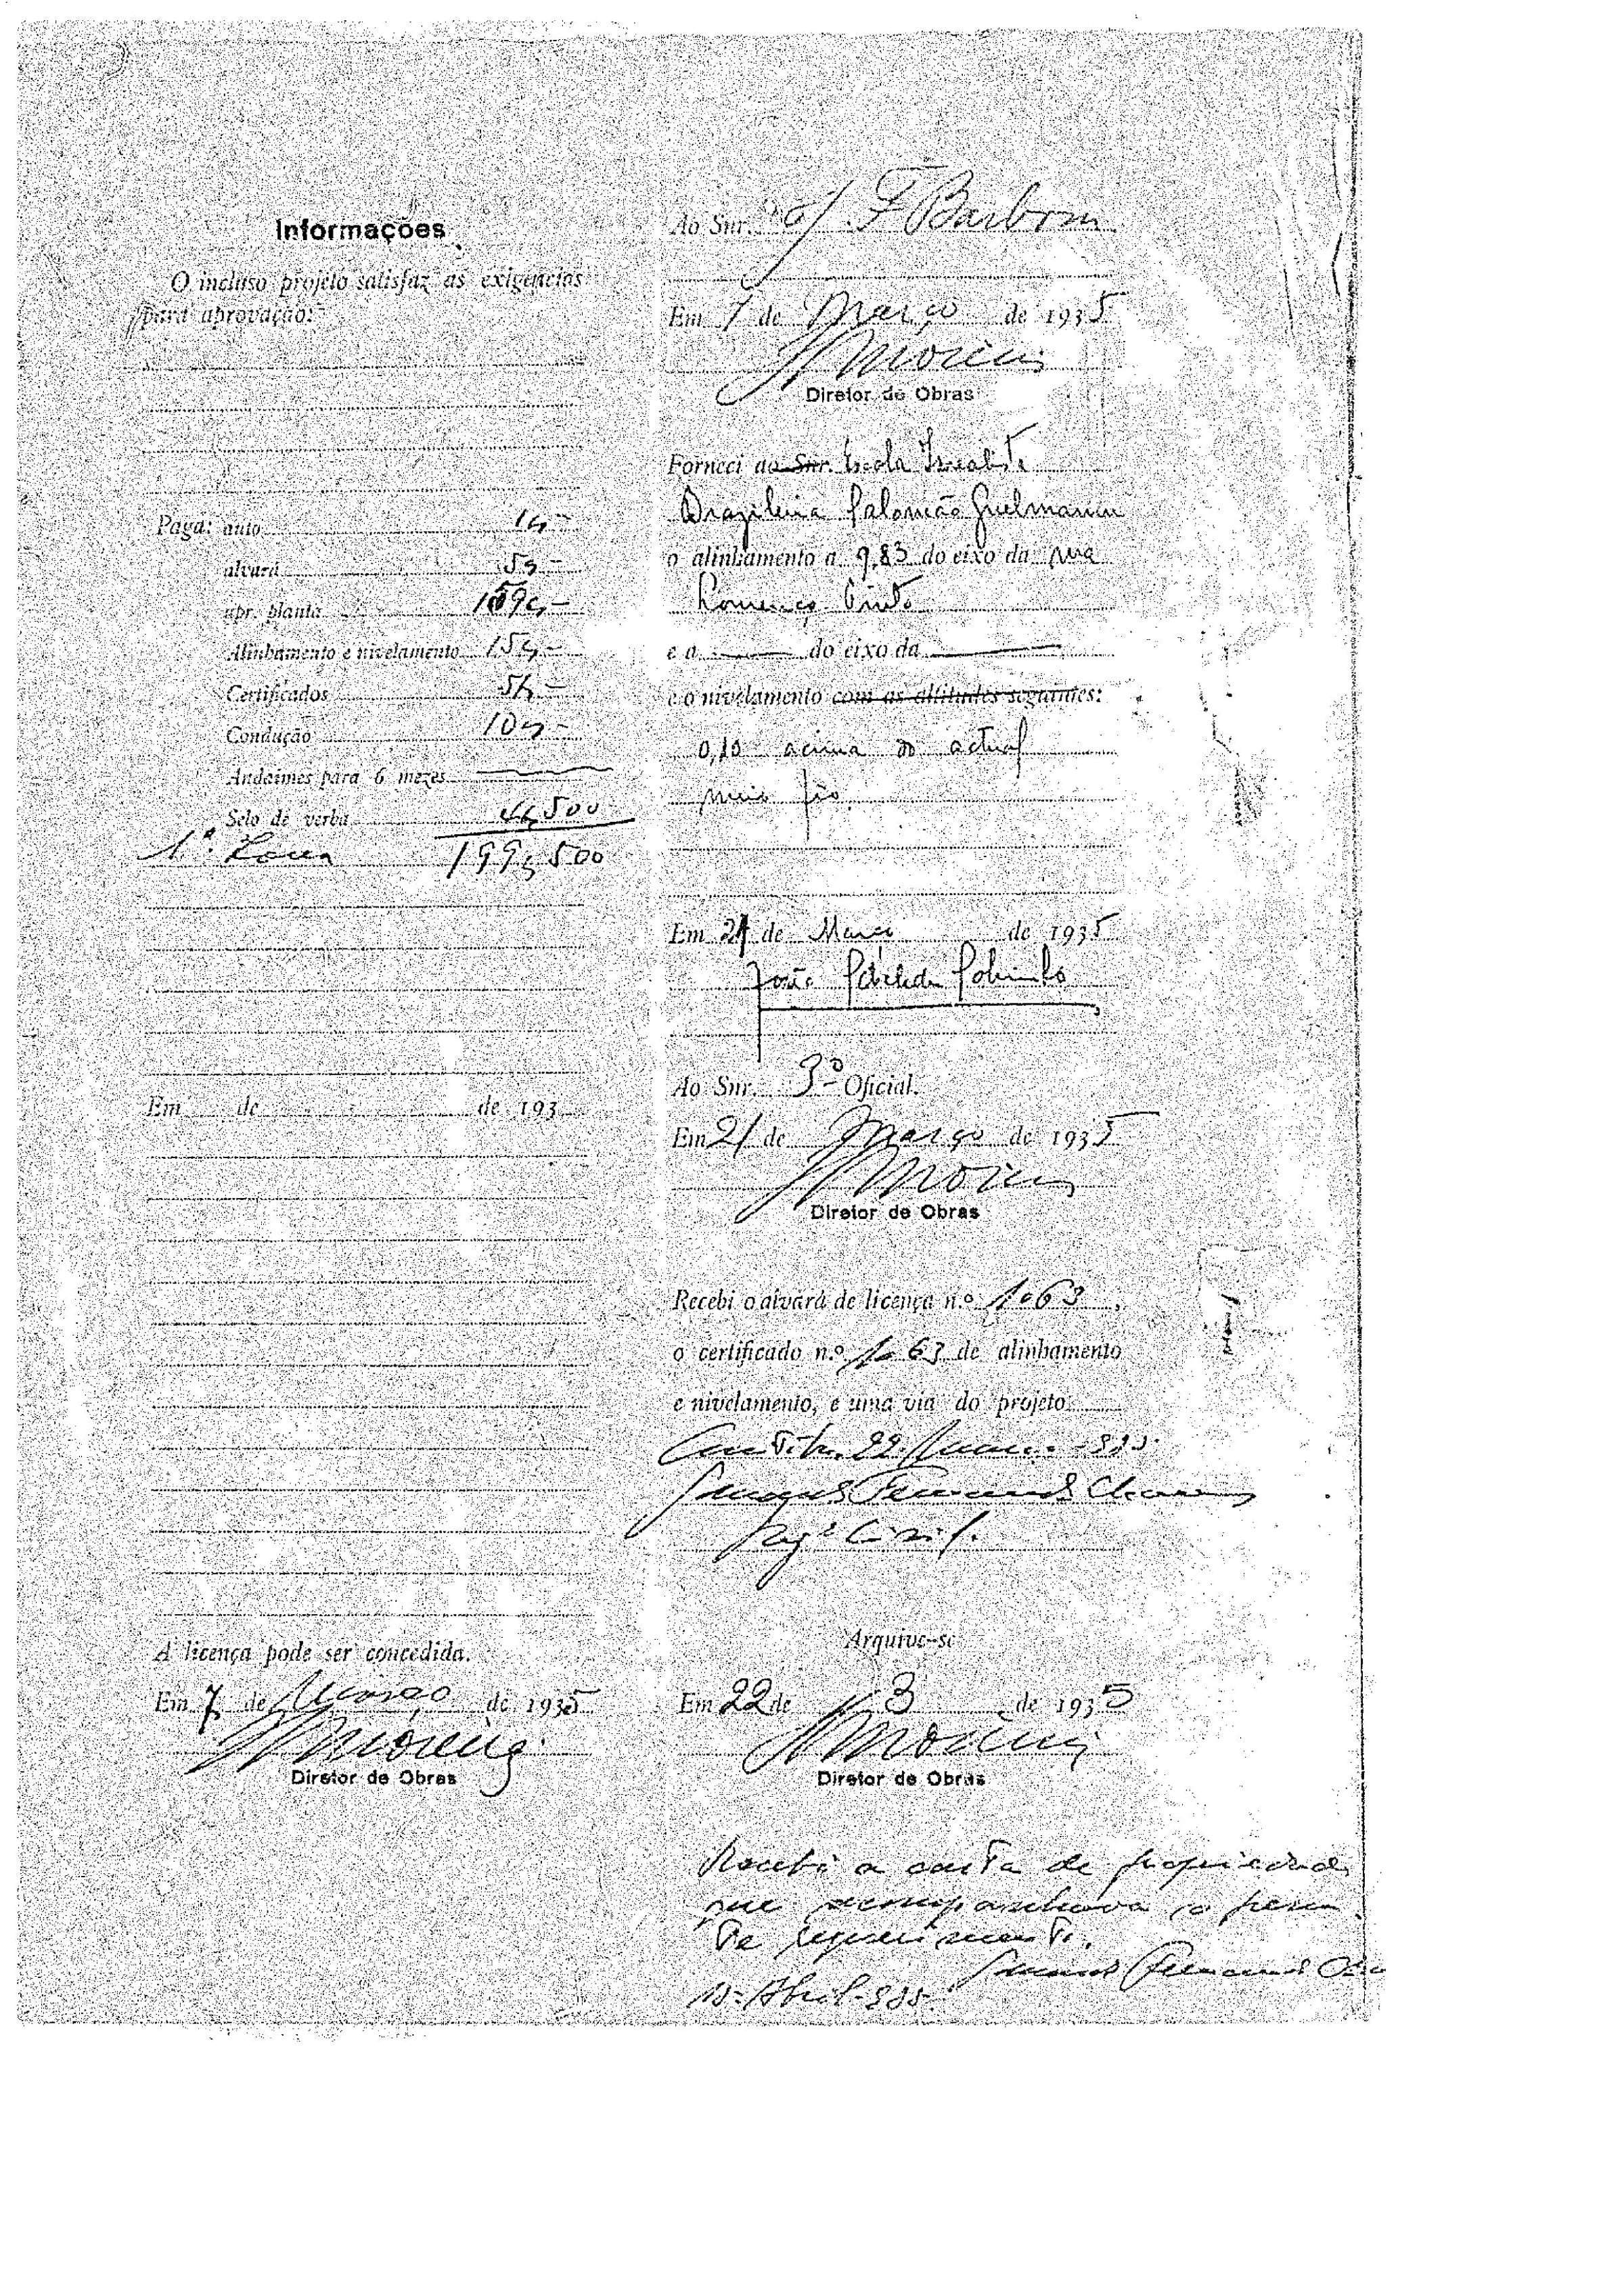 Informações
O incluso projeto satisfaz as exigencias
para aprovação:
Paga: auto 1$-
alvará 5$-
apr. planta
Alinhamento e nivelamento 15$-
Certificados 5$-
Condução 10$-
Andaimes para 6 mezes
Selo de verba 4$500
1ª Zona 199$500
Em de de 193
A licença pode ser concedida.
Em 7 de Março de 1935
Moreira
Diretor de Obras
Ao Snr. F Barbosa
Em 7 de Março de 1935
Moreira
Diretor de Obras
Forneci ao Snr. Escola Israelita
Brazileira Salomão Guelmann
o alinhamento a 9,83 do eixo da rua
Lourenço Pinto
e a do eixo da
e o nivelamento com as altitudes seguintes:
0,10 acima do actual
meio fio.
Em 21 de Março de 1935
João Sobrinho
Ao Snr. 3º Oficial.
Em 21 de Março de 1935
Moreira
Diretor de Obras
Recebi o alvará de licença n.º 1063,
o certificado n.º 1063 de alinhamento
e nivelamento, e uma via do projeto
Curitiba, 22 Março - 935
Fernandes Chaves
Engº Civil.
Arquive-se
Em 22 de 3 de 1935
Moreira
Diretor de Obras
Recebi a carta de propriedade
que acompanhava o presen
te requerimento.
Abril - 935